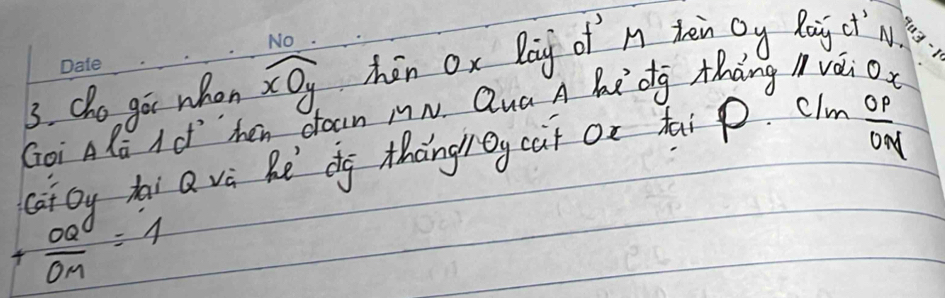 Date No
3. Cho góc nhọn xOy. trên Ox lấy đ' M trên Oy lấy đ' N.
Gọi A là 1 đ' trên đoạn MN. Qua A kẻ đg thẳng // với Ox
cắt Oy tại Q và kẻ đg thẳng // Oy cắt Ox tại P. C/m OP/OM
+ OQ/OM = 1